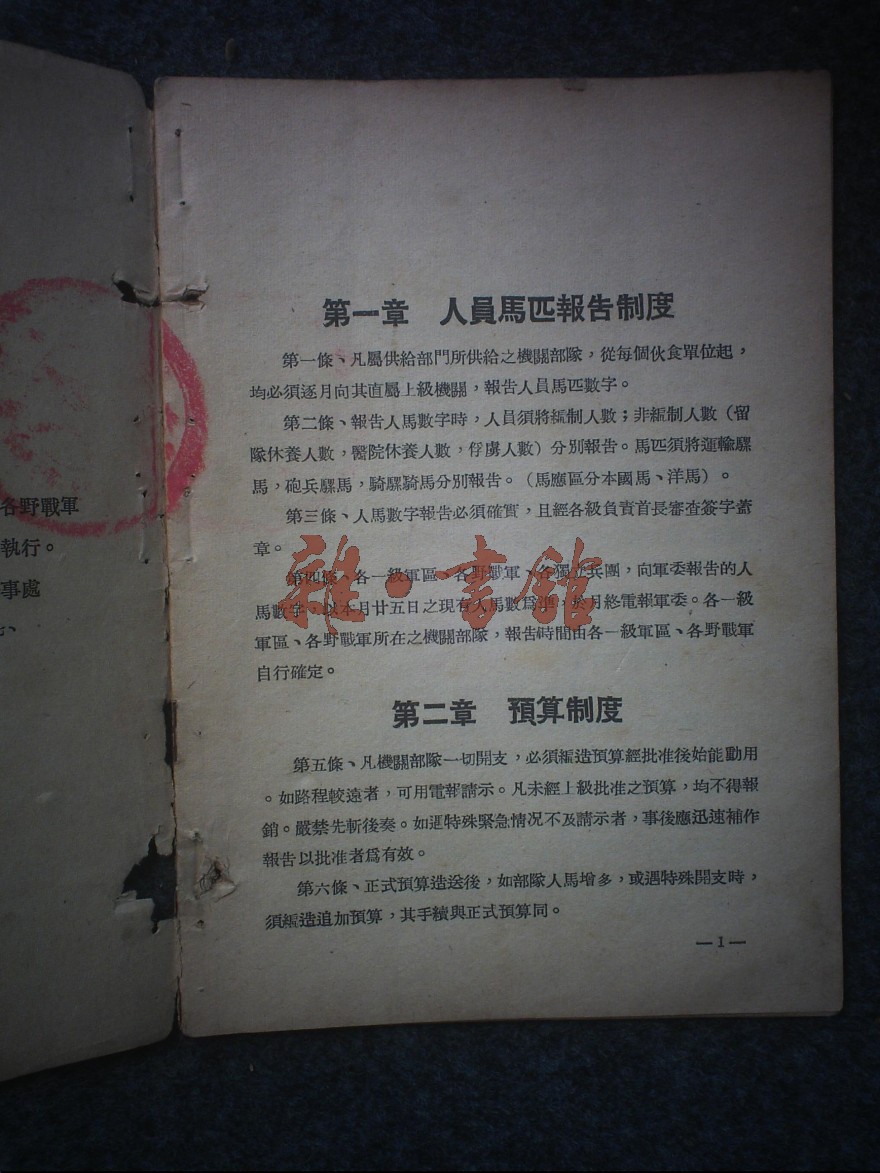 各野戰軍
執行。
事處
第一章 人員馬匹報告制度
第一條、凡屬供給部門所供給之機關部隊，從每個伙食單位起，
均必須逐月向其直屬上級機關，報告人員馬匹數字。
第二條、報告人馬數字時，人員須將編制人數；非編制人數（留
隊休養人數，醫院休養人數，俘虜人數）分別報告。馬匹須將運輸騾
馬，砲兵騾馬，騎騾騎馬分別報告。（馬應區分本國馬、洋馬）。
第三條、人馬數字報告必須確實，且經各級負責首長審查簽字蓋
章。
雜·書館
第四條、各一級軍區、各野戰軍、各獨立兵團，向軍委報告的人
馬數字，以本月廿五日之現有人馬數爲準，於月終電報軍委。各一級
軍區、各野戰軍所在之機關部隊，報告時間由各一級軍區、各野戰軍
自行確定。
第二章 預算制度
第五條、凡機關部隊一切開支，必須編造預算經批准後始能動用
。如路程較遠者，可用電報請示。凡未經上級批准之預算，均不得報
銷。嚴禁先斬後奏。如遇特殊緊急情况不及請示者，事後應迅速補作
報告以批准者爲有效。
第六條、正式預算造送後，如部隊人馬增多，或遇特殊開支時，
須編造追加預算，其手續與正式預算同。
—1—